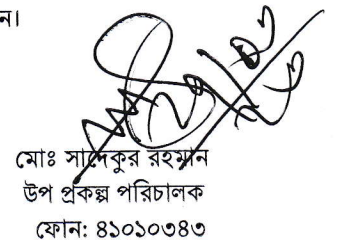 ন।
মোঃ সাদেকুর রহমান
উপ প্রকল্প পরিচালক
ফোন: ৪১০১০৩৪৩